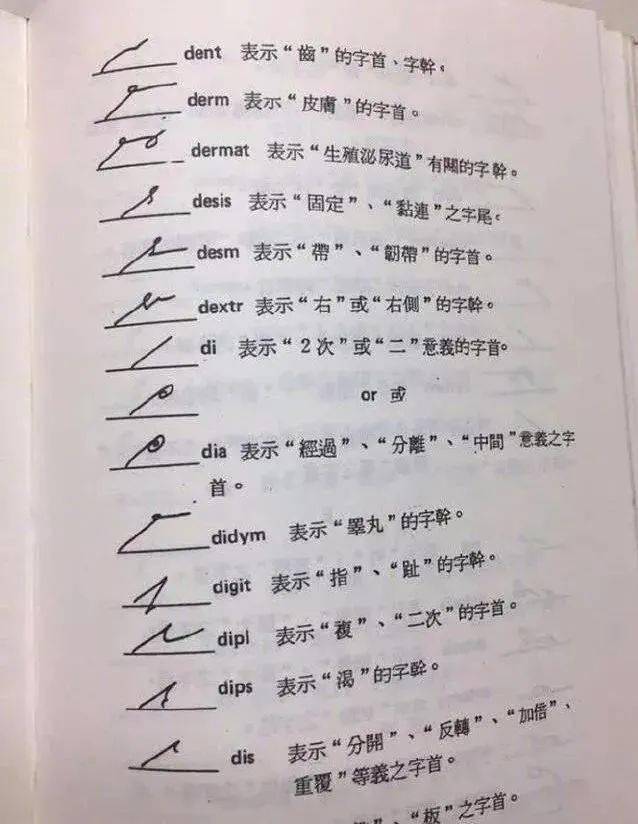 dent 表示“齒”的字首、字幹。
derm 表示“皮膚”的字首。
dermat 表示“生殖泌尿道”有關的字幹。
desis 表示“固定”、“黏連”之字尾。
desm 表示“帶”、“韌帶”的字首。
dextr 表示“右”或“右側”的字幹。
di 表示“2次”或“二”意義的字首。
or 或
dia 表示“經過”、“分離”、“中間”意義之字
首。
didym 表示“睪丸”的字幹。
digit 表示“指”、“趾”的字幹。
dipl 表示“複”、“二次”的字首。
dips 表示“渴”的字幹。
dis 表示“分開”、“反轉”、“加倍”、
重覆”等義之字首。
、“板”之字首。